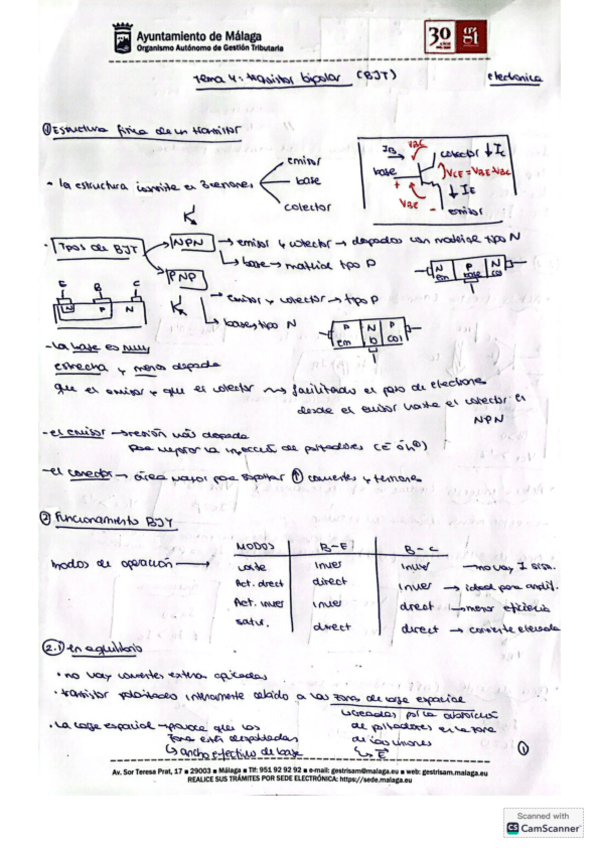 Ayuntamiento de Málaga
Organismo Autónomo de Gestión Tributaria
30
Tema 4: transistor bipolar (BJT) electronica
① Estructura física de un transistor
· la estructura consiste en 3 regiones
emisor
base
colector
IB VBC colector ↓ IC
base VCE = VBE - VBC
+ VBE - ↓ IE
emisor
· Tipos de BJT
NPN → emisor y colector → dopados con material tipo N
↳ base → material tipo P
N em P base N col
PNP → emisor y colector → tipo P
↳ base → tipo N
P em N b P col
E B C
N P N
- la base es muy
estrecha y menos dopada
que el emisor y que el colector → facilitando el paso de electrones
desde el emisor hasta el colector en
NPN
- el emisor → región más dopada
para mejorar la inyección de portadores (e⁻ ó h⁺)
- el colector → área mayor para soportar ↑ corrientes y tensiones
② Funcionamiento BJT
modos de operación →
MODOS B-E B-C
corte inver inver → no hay I
Act. direct direct inver → ideal para amplif.
Act. inver inver direct → menor eficiencia
satur. direct direct → corriente elevada
2.1 en equilibrio
· no hay corrientes externas aplicadas
· transistor polarizado internamente debido a las zonas de carga espacial
· La carga espacial → provoca que las
zonas estén despobladas
↳ ancho efectivo de base
de portadores en la zona
de las uniones
↳ E
①
Av. Sor Teresa Prat, 17 ■ 29003 ■ Málaga ■ Tlf: 951 92 92 92 ■ e-mail: gestrisam@malaga.eu ■ web: gestrisam.malaga.eu
REALICE SUS TRÁMITES POR SEDE ELECTRÓNICA: https://sede.malaga.eu
Scanned with
CS CamScanner